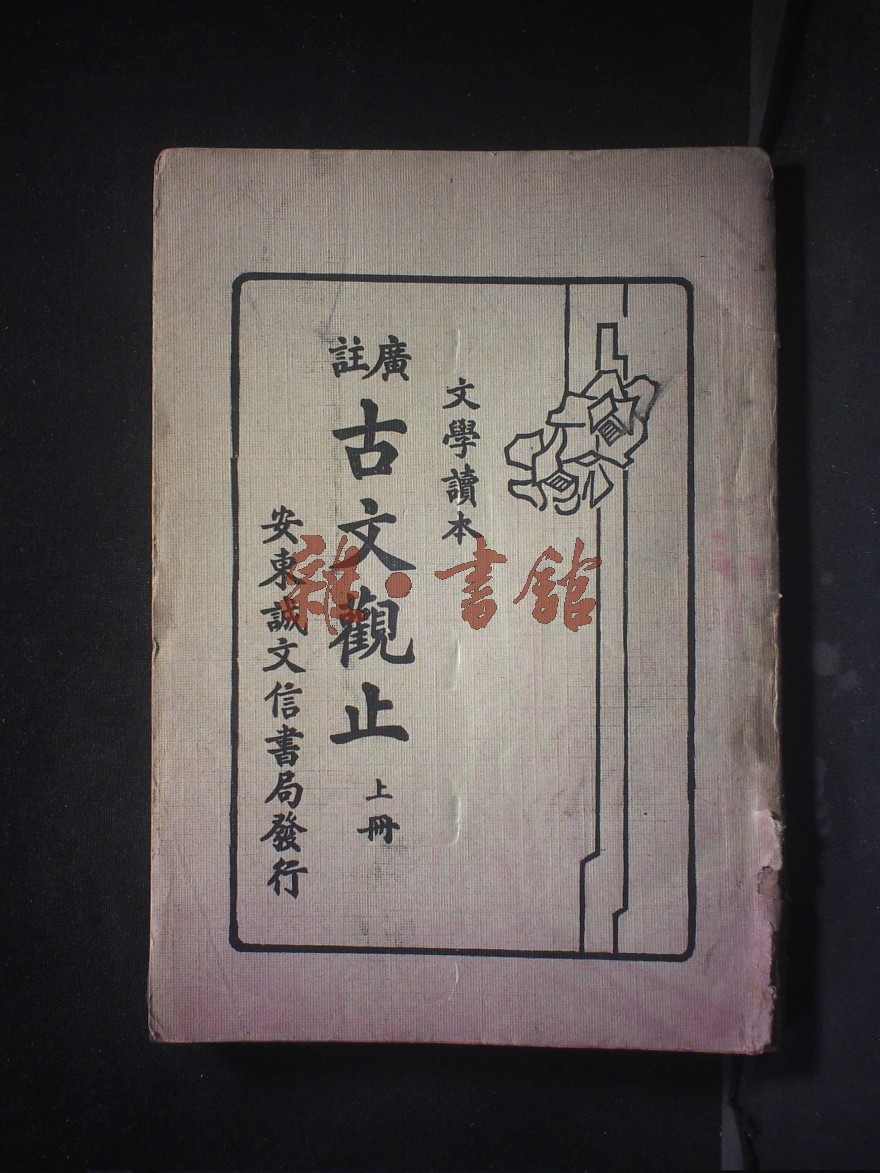 文學讀本
廣註
古文觀止
上冊
安東誠文信書局發行
雜·書館